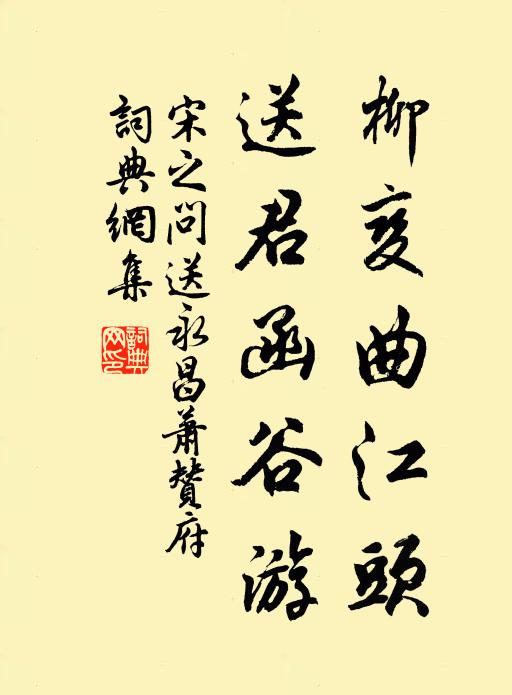 柳变曲江頭
送君函谷游
宋之问送永昌萧赞府
詞典網集
詞典网印